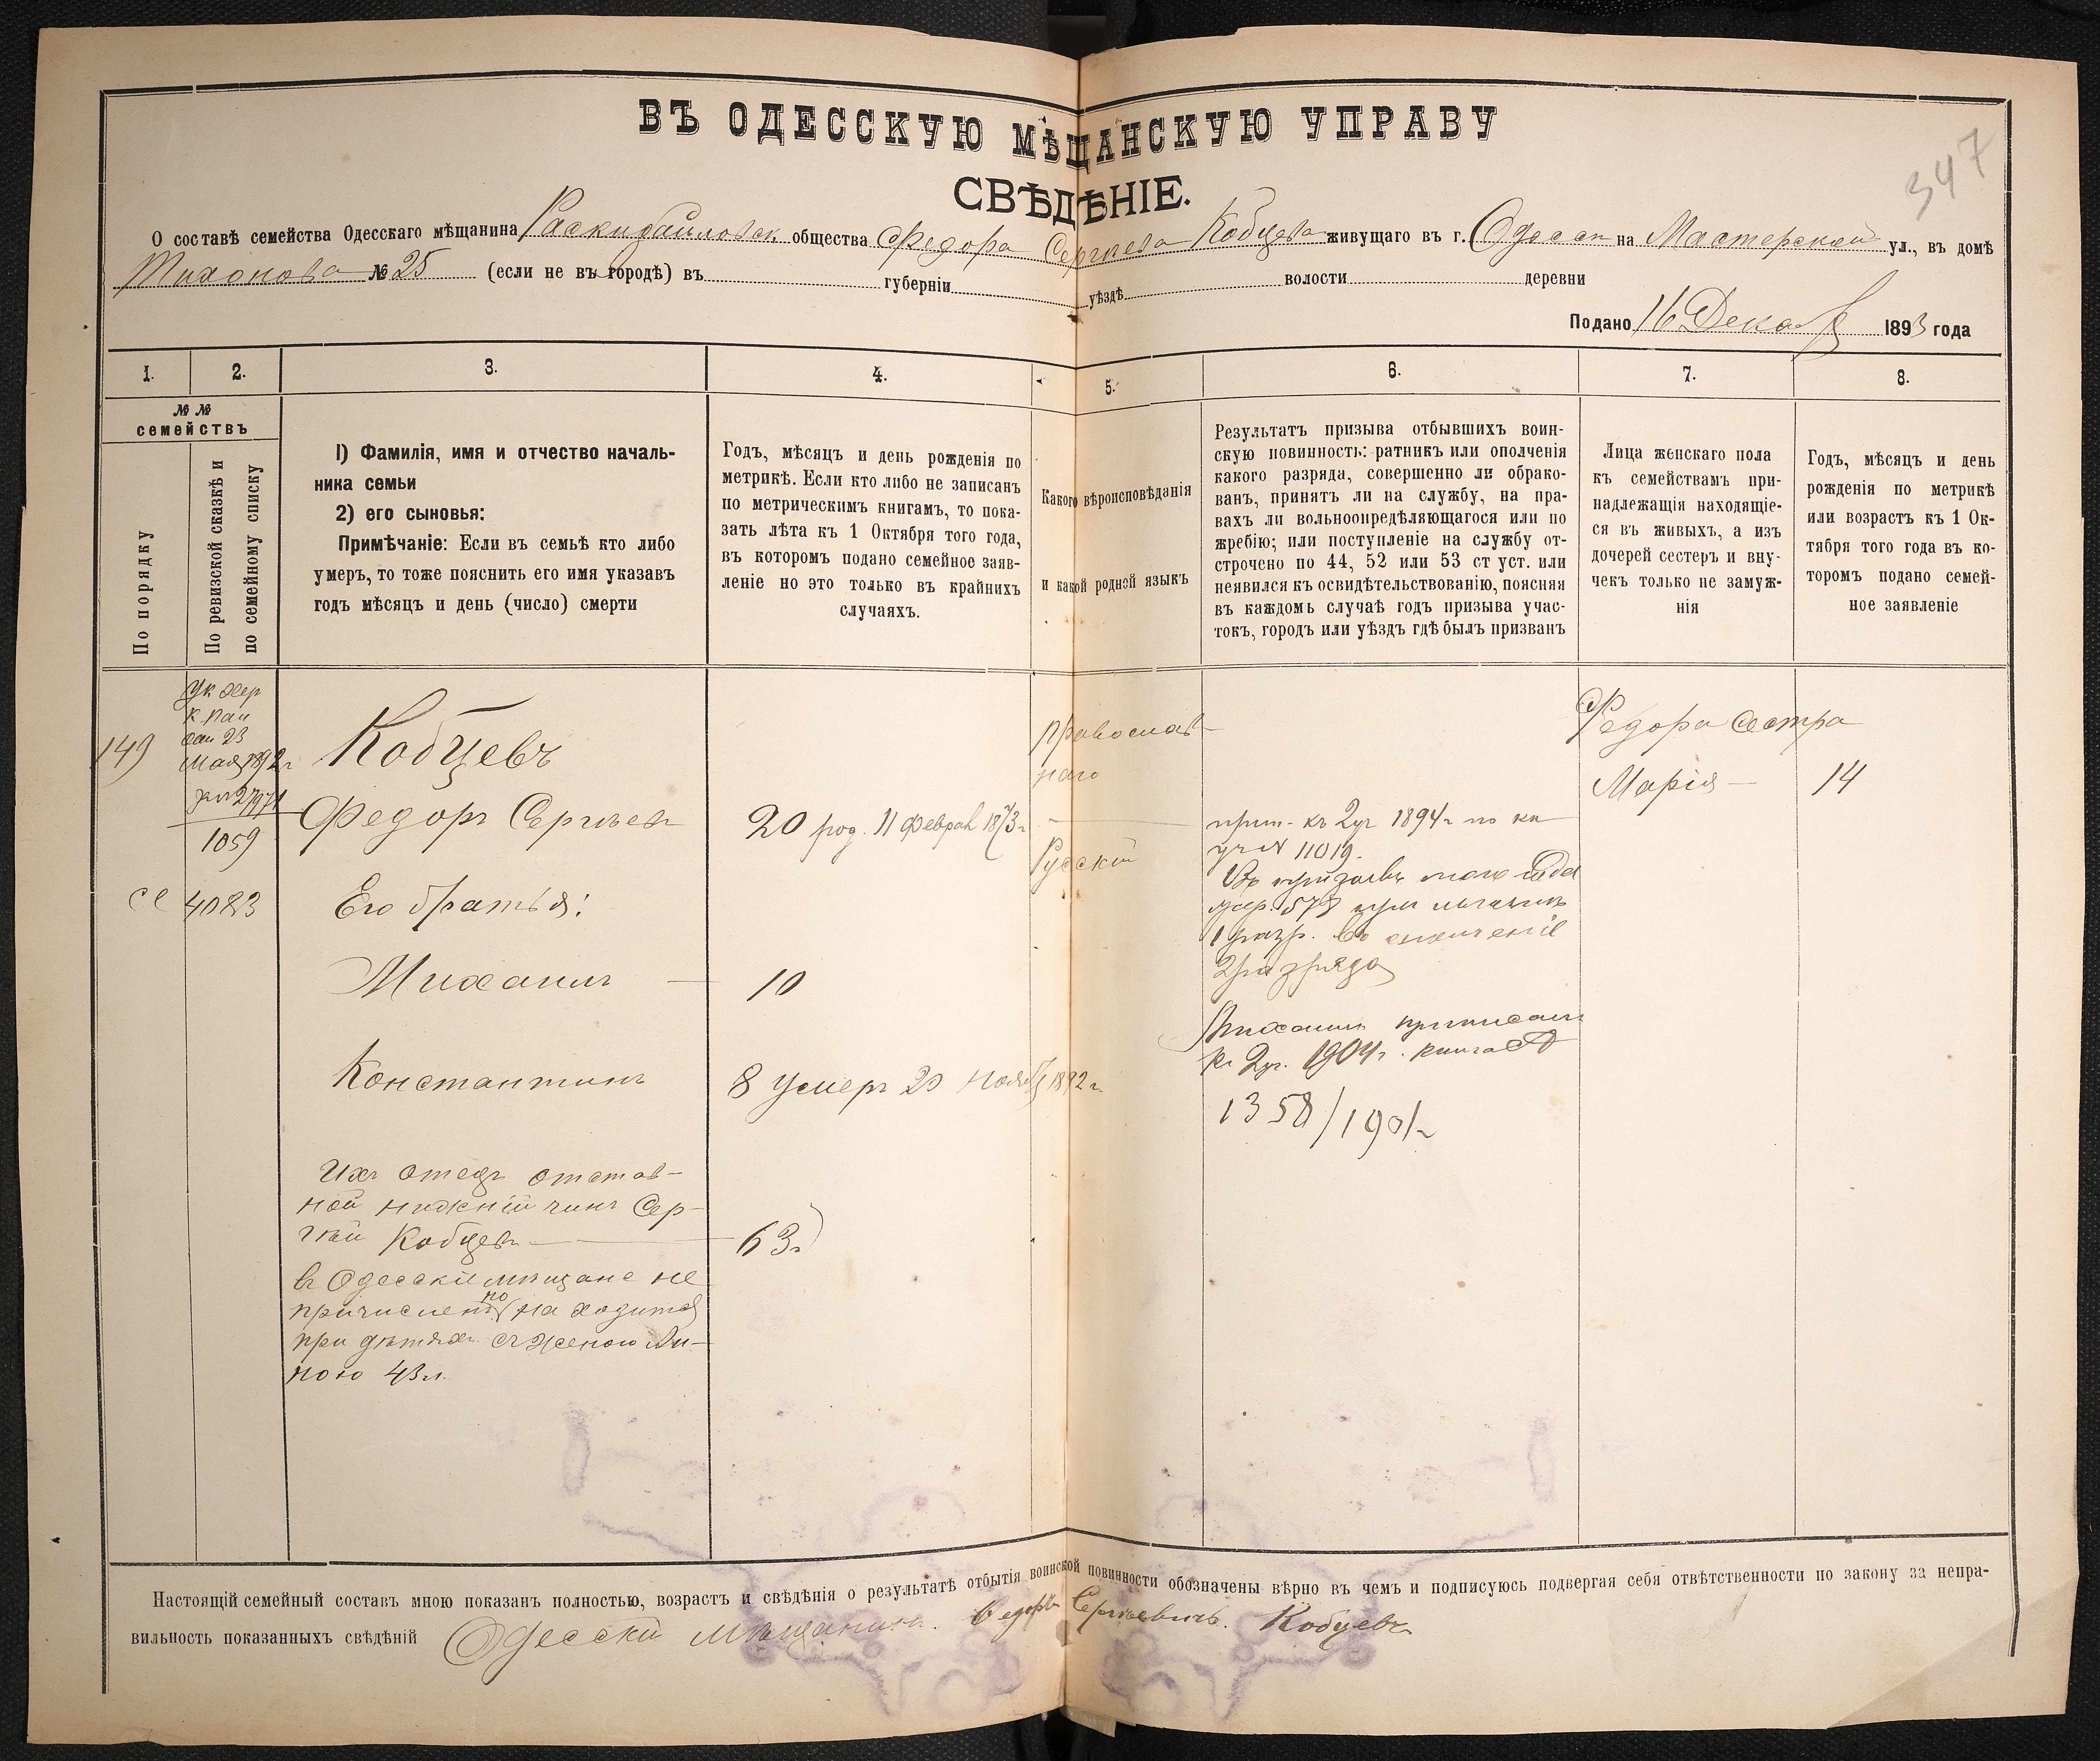 ВЪ ОДЕССКУЮ МѢЩАНСКУЮ УПРАВУ
347
СВѢДѢНІЕ.
О составѣ семейства Одесскаго мѣщанина общества Федора Сергѣева Кобцева живущаго въ г. Одессѣ на Мастерской ул., въ домѣ
Тихонова № 25 (если не въ городѣ) въ губерніи уѣздѣ волости деревни
Подано 16 Декаб 1893 года
1. 2. 3. 4. 5. 6. 7. 8.
№ №
семействъ
По порядку
По ревизской сказкѣ и
по семейному списку
1) Фамилія, имя и отчество началь-
ника семьи
2) его сыновья:
Примѣчаніе: Если въ семьѣ кто либо
умеръ, то тоже пояснить его имя указавъ
годъ мѣсяцъ и день (число) смерти
Годъ, мѣсяцъ и день рожденія по
метрикѣ. Если кто либо не записанъ
по метрическимъ книгамъ, то пока-
зать лѣта къ 1 Октября того года,
въ которомъ подано семейное заяв-
леніе но это только въ крайнихъ
случаяхъ.
Какого вѣроисповѣданія
и какой родной языкъ
Результатъ призыва отбывшихъ воин-
скую повинность: ратникъ или ополченія
какого разряда, совершенно ли обрако-
ванъ, принятъ ли на службу, на пра-
вахъ ли вольноопредѣляющагося или по
жребію; или поступленіе на службу от-
строчено по 44, 52 или 53 ст уст. или
неявился къ освидѣтельствованію, поясняя
въ каждомъ случаѣ годъ призыва учас-
токъ, городъ или уѣздъ гдѣ былъ призванъ
Лица женскаго пола
къ семействамъ при-
надлежащія находящіе-
ся въ живыхъ, а изъ
дочерей сестеръ и вну-
чекъ только не замуж-
нія
Годъ, мѣсяцъ и день
рожденія по метрикѣ
или возрастъ къ 1 Ок-
тября того года въ ко-
торомъ подано семей-
ное заявленіе
149
Ук Хер
к. пал
23
мая 1892 г
1059
4083
Кобцевъ
Федоръ Сергѣев
20 род. 11 Феврал 1873 г
Православ-
наго
Русскій
Его братья:
Михаилъ — 10
Константинъ
8 умеръ 20 ноябр 1892 г.
Ихъ отецъ отстав-
ной нижній чинъ Сер-
гѣй Кобцевъ — 63 г
въ Одесскіе мѣщане не
причисленъ но находится
при дѣтяхъ съ женою Ан-
ною 43 л.
прип. къ 2 уч 1894 г по кн
уч N 11019.
1 разр. въ ополченіе
2 разряда
Михаилъ приписанъ
къ 2 уч. 1904 г. книга
1358/1901 г
Федора сестра
Марія — 14
Настоящій семейный составъ мною показанъ полностью, возрастъ и свѣдѣнія о результатѣ отбытія воинской повинности обозначены вѣрно въ чемъ и подписуюсь подвергая себя отвѣтственности по закону за непра-
вильность показанныхъ свѣдѣній Одесскій мѣщанинъ. Федоръ Сергѣевичъ. Кобцевъ